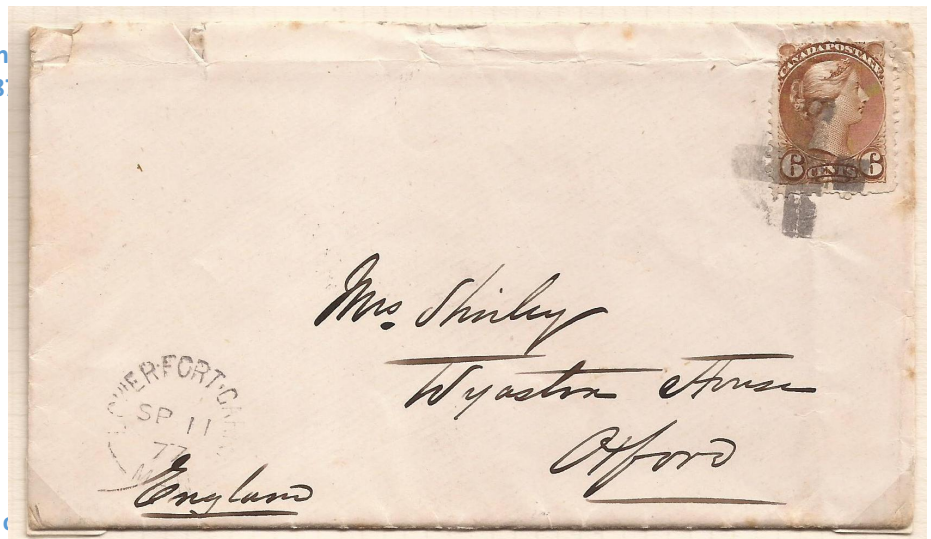 CANADA POSTAGE
6 CENTS 6
Mrs. Shirley
Wyaston House
Oxford
LOWER·FORT·GARRY
SP 11
77
England